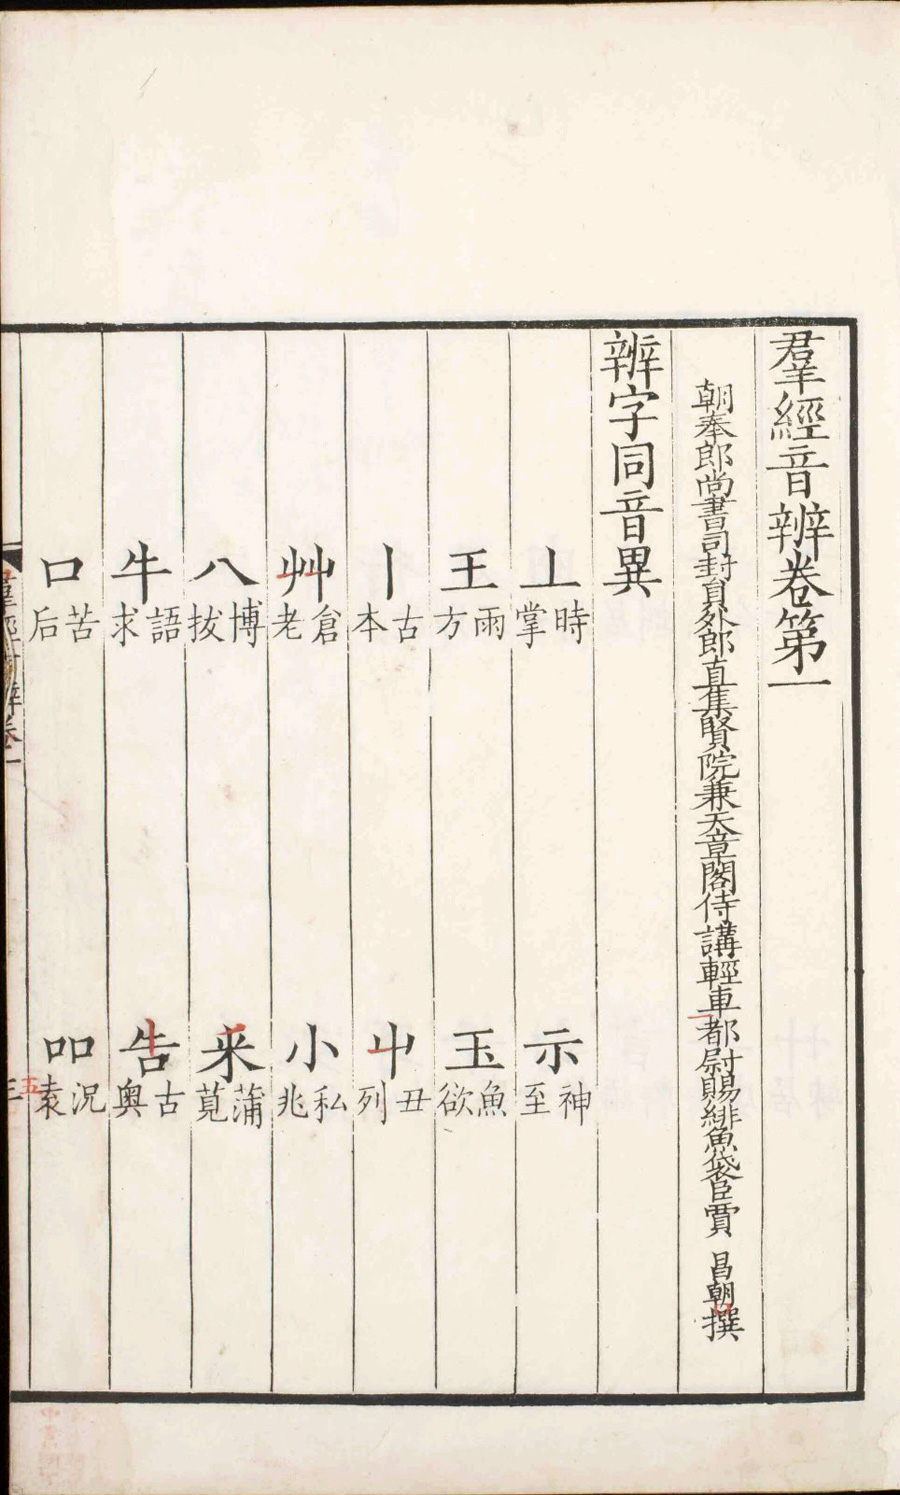 羣經音辨卷第一
朝奉郎尚書司封員外郎直集賢院兼天章閣侍講輕車都尉賜緋魚袋臣賈 昌朝撰
辨字同音異
丄 時掌 示 神至
王 雨方 玉 魚欲
丨 古本 屮 丑列
艸 倉老 小 私兆
八 博拔 釆 蒲莧
牛 語求 告 古奥
口 苦后 吅 況袁